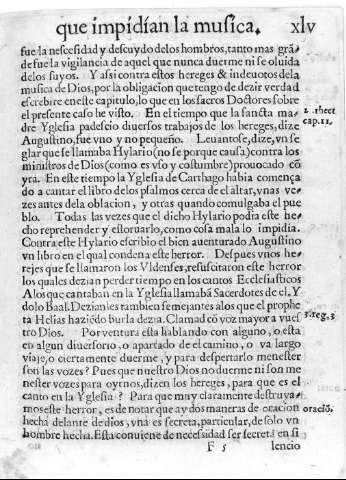 que impidían la musica. xlv
fue la nescesidad y descuydo delos hombros, tanto mas grã
de fue la vigilancia de aquel que nunca duerme ni se oluida
delos suyos. Y assi contra estos hereges & indeuotos dela
musica de Dios, por la obligacion que tengo de dezir verdad
escrebire eneste capitulo, lo que en los sacros Doctores sobre
el presente caso he visto. En el tiempo que la sancta ma
dre Yglesia padescio diuersos trabajos de los hereges, dize
Augustino, fue vno y no pequeño. Leuantose, dize, vn se
glar que se llamaba Hylario (no se porque causa) contra los
ministros de Dios (como es vso y costumbre) prouocado cõ
yra. En este tiempo la Yglesia de Carthago habia comença
do a cantar el libro delos psalmos cerca de el altar, vnas ve
zes antes dela oblacion, y otras quando comulgaba el pue
blo. Todas las vezes que el dicho Hylario podia este he
cho reprehender y estoruarlo, como cosa mala lo impidia.
Contra este Hylario escribio el bien auenturado Augustino
vn libro en el qual condena este herror. Despues vnos he
rejes que se llamaron los Vldenses, resuscitaron este herror
los quales dezian perder tiempo en los cantos Ecclesiasticos
A los que cantaban en la Yglesia llamabã Sacerdotes de el, Y
dolo Baal. Dezianles tambien semejantes a los que el prophe
ta Helias haziẽdo burla dezia. Clamad cõ voz mayor a vues
tro Dios. Por ventura esta hablando con alguno, o esta
en algun diuersorio, o apartado de el camino, o va largo
viaje, o ciertamente duerme, y para despertarlo menester
son las vozes? Pues que nuestro Dios no duerme ni son me
nester vozes para oyrnos, dizen los hereges, para que es el
canto en la Yglesia? Para que muy claramente destruya-
mos este herror, es de notar que ay dos maneras de oracion
hecha delante de dios, vna es secreta, particular, de solo vn
hombre hecha. Esta conuiene de necesidad ser secreta en si
F 5 lencio
cap. 11.
3. reg. 3
oraciõ.